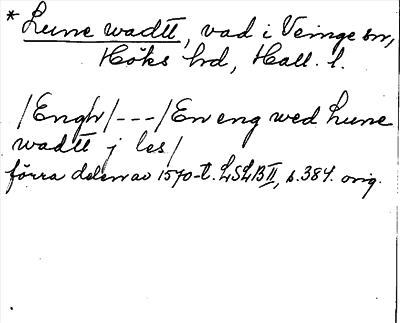 * Lune wadtt, vad i Veinge sn,
Höks hd, Hall. l.
/Engh/---/En eng wed Lune
wadtt j les/
förra delen av 1570-t. LSLB II, s. 384. orig.